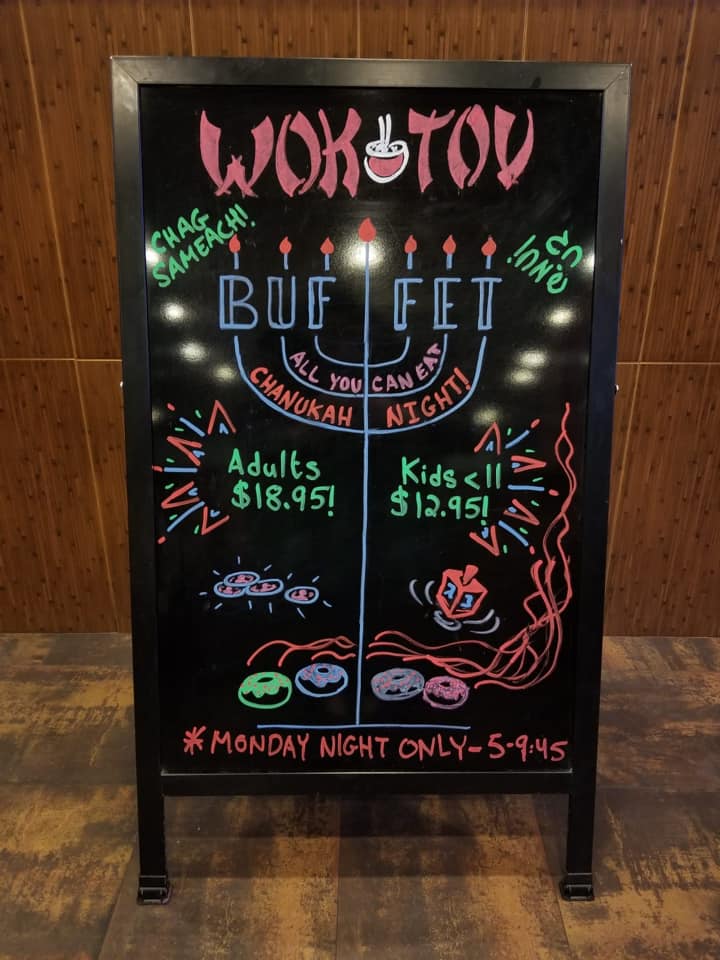 WOK TOV
CHAG
SAMEACH!
חג
שמח!
BUF FET
ALL YOU CAN EAT
CHANUKAH NIGHT!
Adults
$18.95!
Kids < 11
$12.95!
* MONDAY NIGHT ONLY - 5-9:45